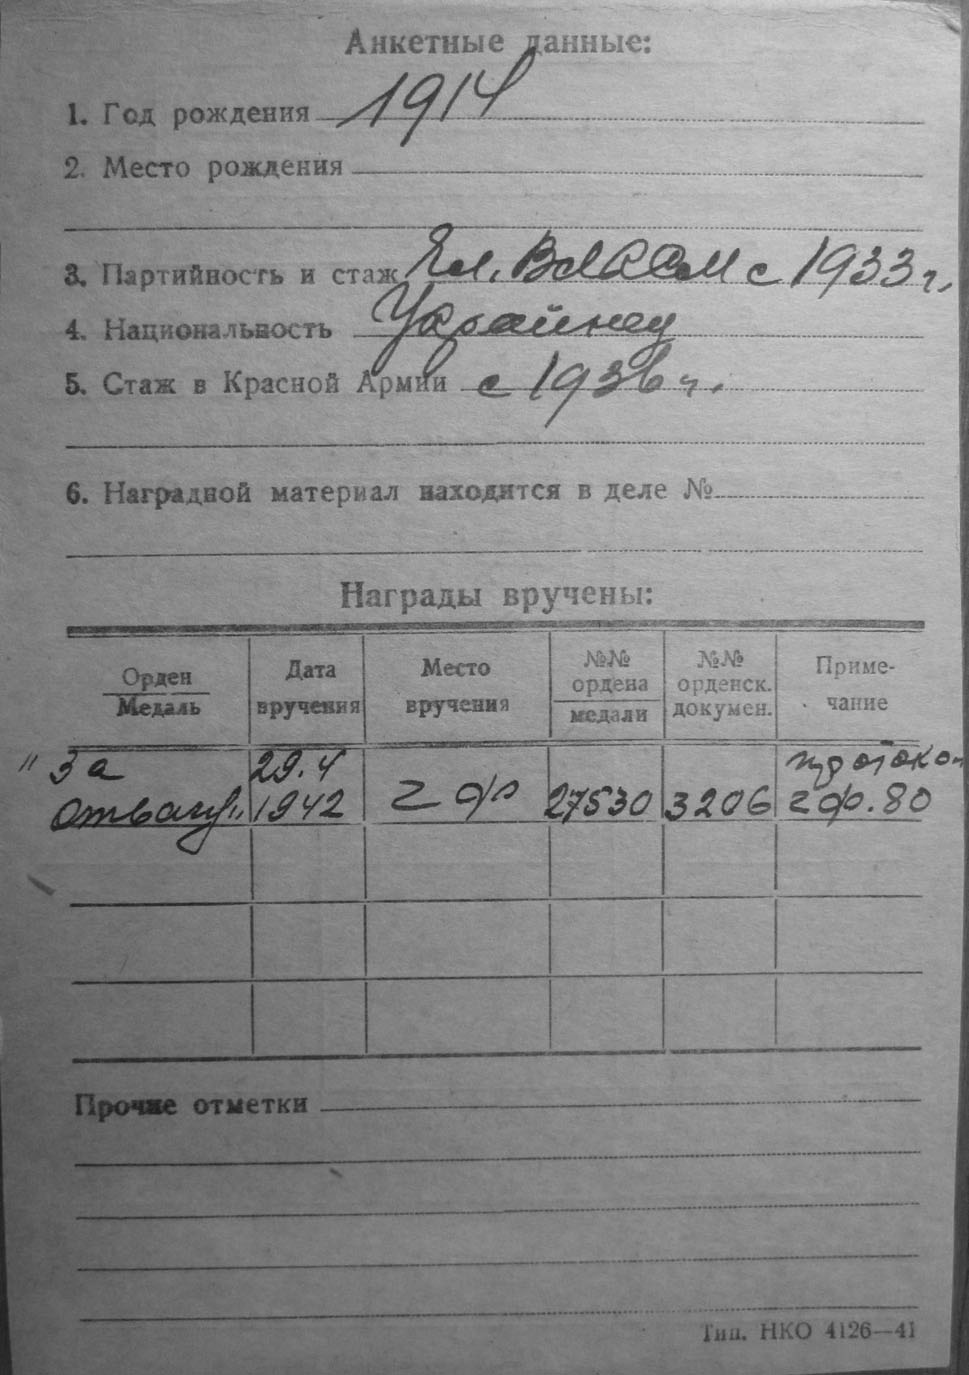 Анкетные данные:
1. Год рождения 1914
2. Место рождения
3. Партийность и стаж Чл. ВЛКСМ с 1933 г.
4. Национальность Украинец
5. Стаж в Красной Армии с 1936 г.
6. Наградной материал находится в деле №
Награды вручены:
Орден
Медаль
Дата
вручения
Место
вручения
№№
ордена
медали
№№
орденск.
докумен.
Приме-
чание
"За
отвагу"
29.4
1942
27530
3206
протокол
80
Прочие отметки
Тип. НКО 4126—41